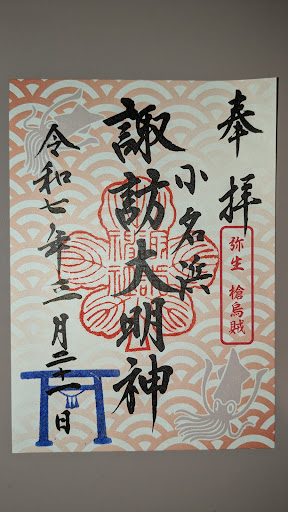 奉拝
弥生 槍烏賊
小名浜
諏訪大明神
令和七年三月二十一日